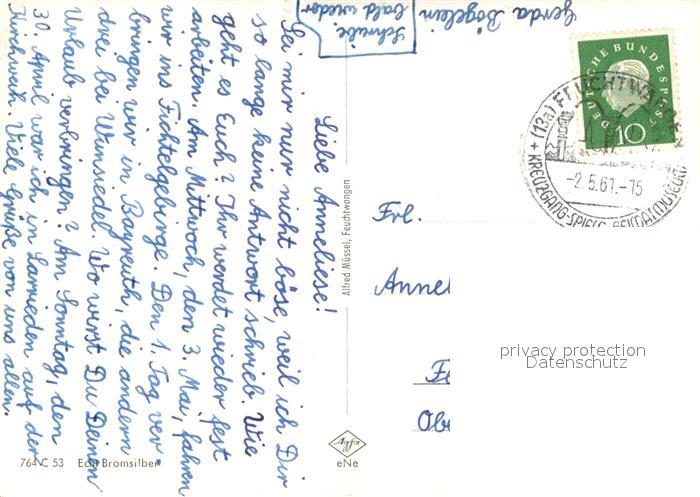 Liebe Anneliese!
Sei mir nur nicht böse, weil ich Dir
so lange keine Antwort schrieb. Wie
geht es Euch? Ihr werdet wieder fest
arbeiten. Am Mittwoch, den 3. Mai, fahren
wir ins Fichtelgebirge. Den 1. Tag ver-
bringen wir in Bayreuth, die andern
drei bei Wunsiedel. Wo wirst Du Deinen
Urlaub verbringen? Am Sonntag, den
30. April war ich in Larrieden auf der
Kirchweih. Viele Grüße von uns allen.
Gerda Bögelein
Schreibe
bald wieder
Alfred Müssel, Feuchtwangen
DEUTSCHE BUNDESPOST
10
(13a) FEUCHTWANGEN
-2.5.61.-15
KREUZGANG-SPIELE HEIMATMUSEUM
Frl.
Annel
Fe
Obe
privacy protection
Datenschutz
764 C 53 Echt Bromsilber
eNe